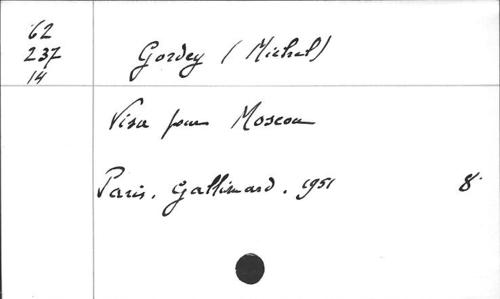 62
237
14
Gordey (Michel)
Visa pour Moscou
Paris. Gallimard. 1951 8°